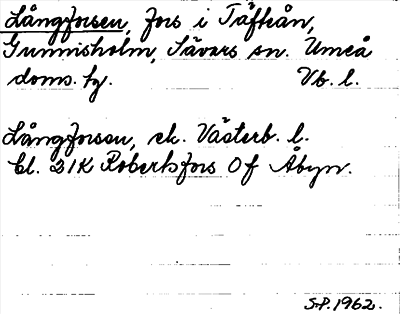 Långforsen, fors i Täfteån,
Gunnisholm, Sävars sn. Umeå
doms. hg. Vb. l.
Långforsen, ek. Västerb. l.
bl. 21K Robertsfors Of Åbyn.
S.P. 1962.